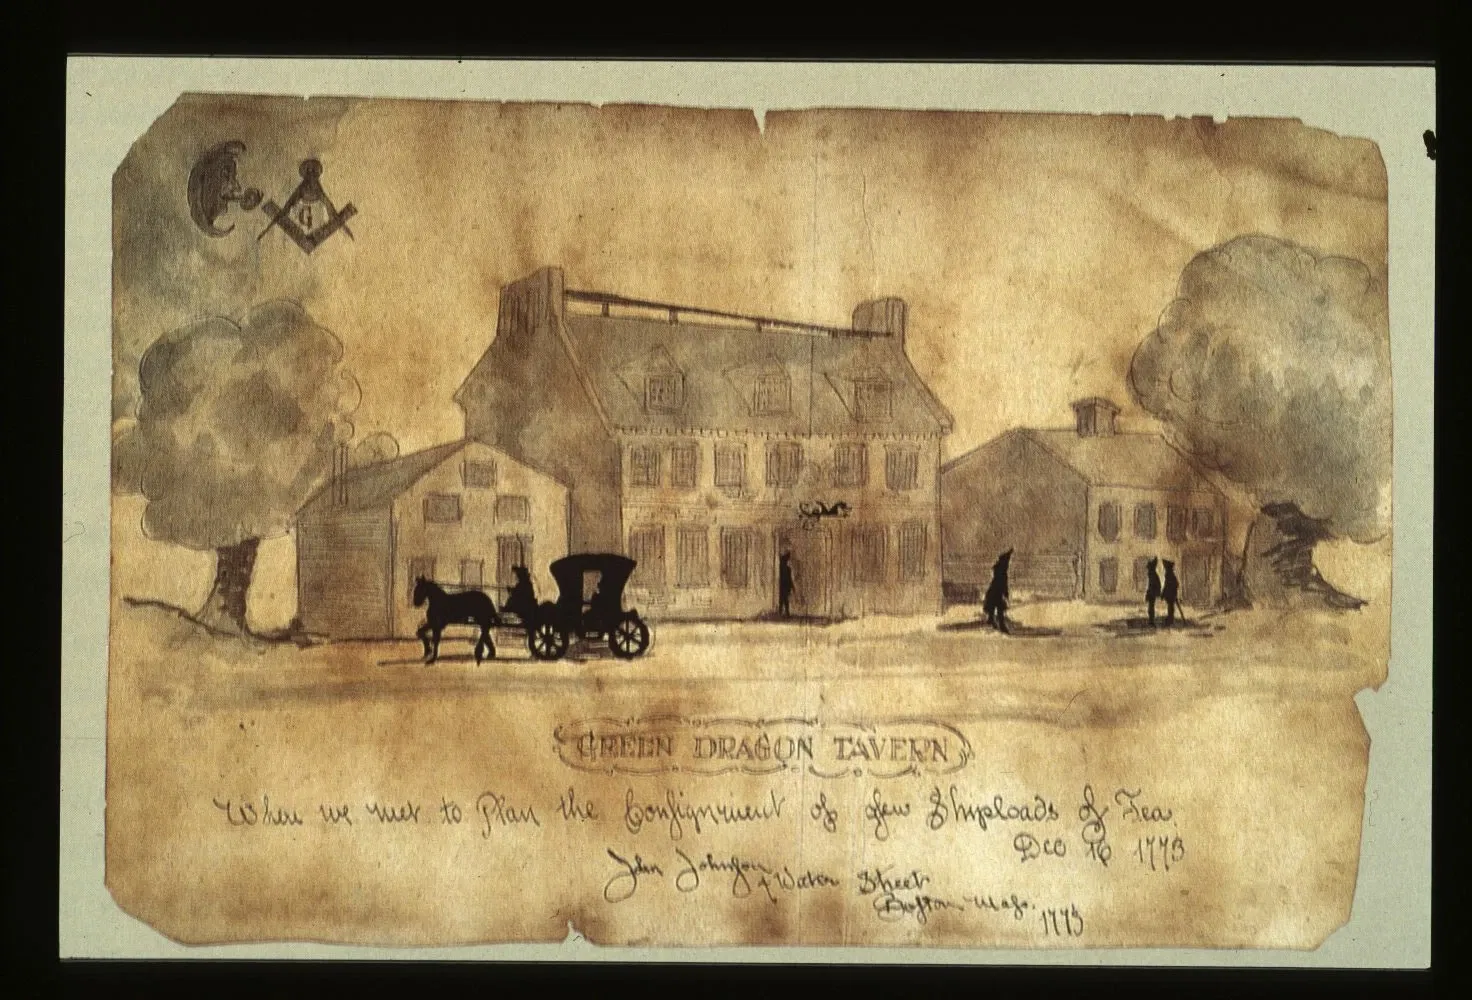 G
GREEN DRAGON TAVERN
Where we met to Plan the Consignment of a few Shiploads of Tea.
Dec 16 1773
John Johnson 4 Water Street
Boston Mass. 1773